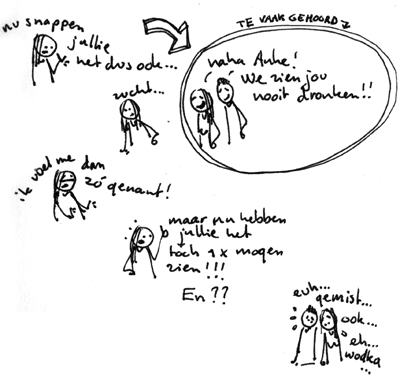 nu snappen
jullie
het dus ook...
zucht...
TE VAAK GEHOORD
haha Anke!
We zien jou
nooit dronken!!
ik voel me dan
zó genant!
maar nu hebben
jullie het
toch 1x mogen
zien!!!
En??
euh...
gemist...
ook...
eh...
wodka
...